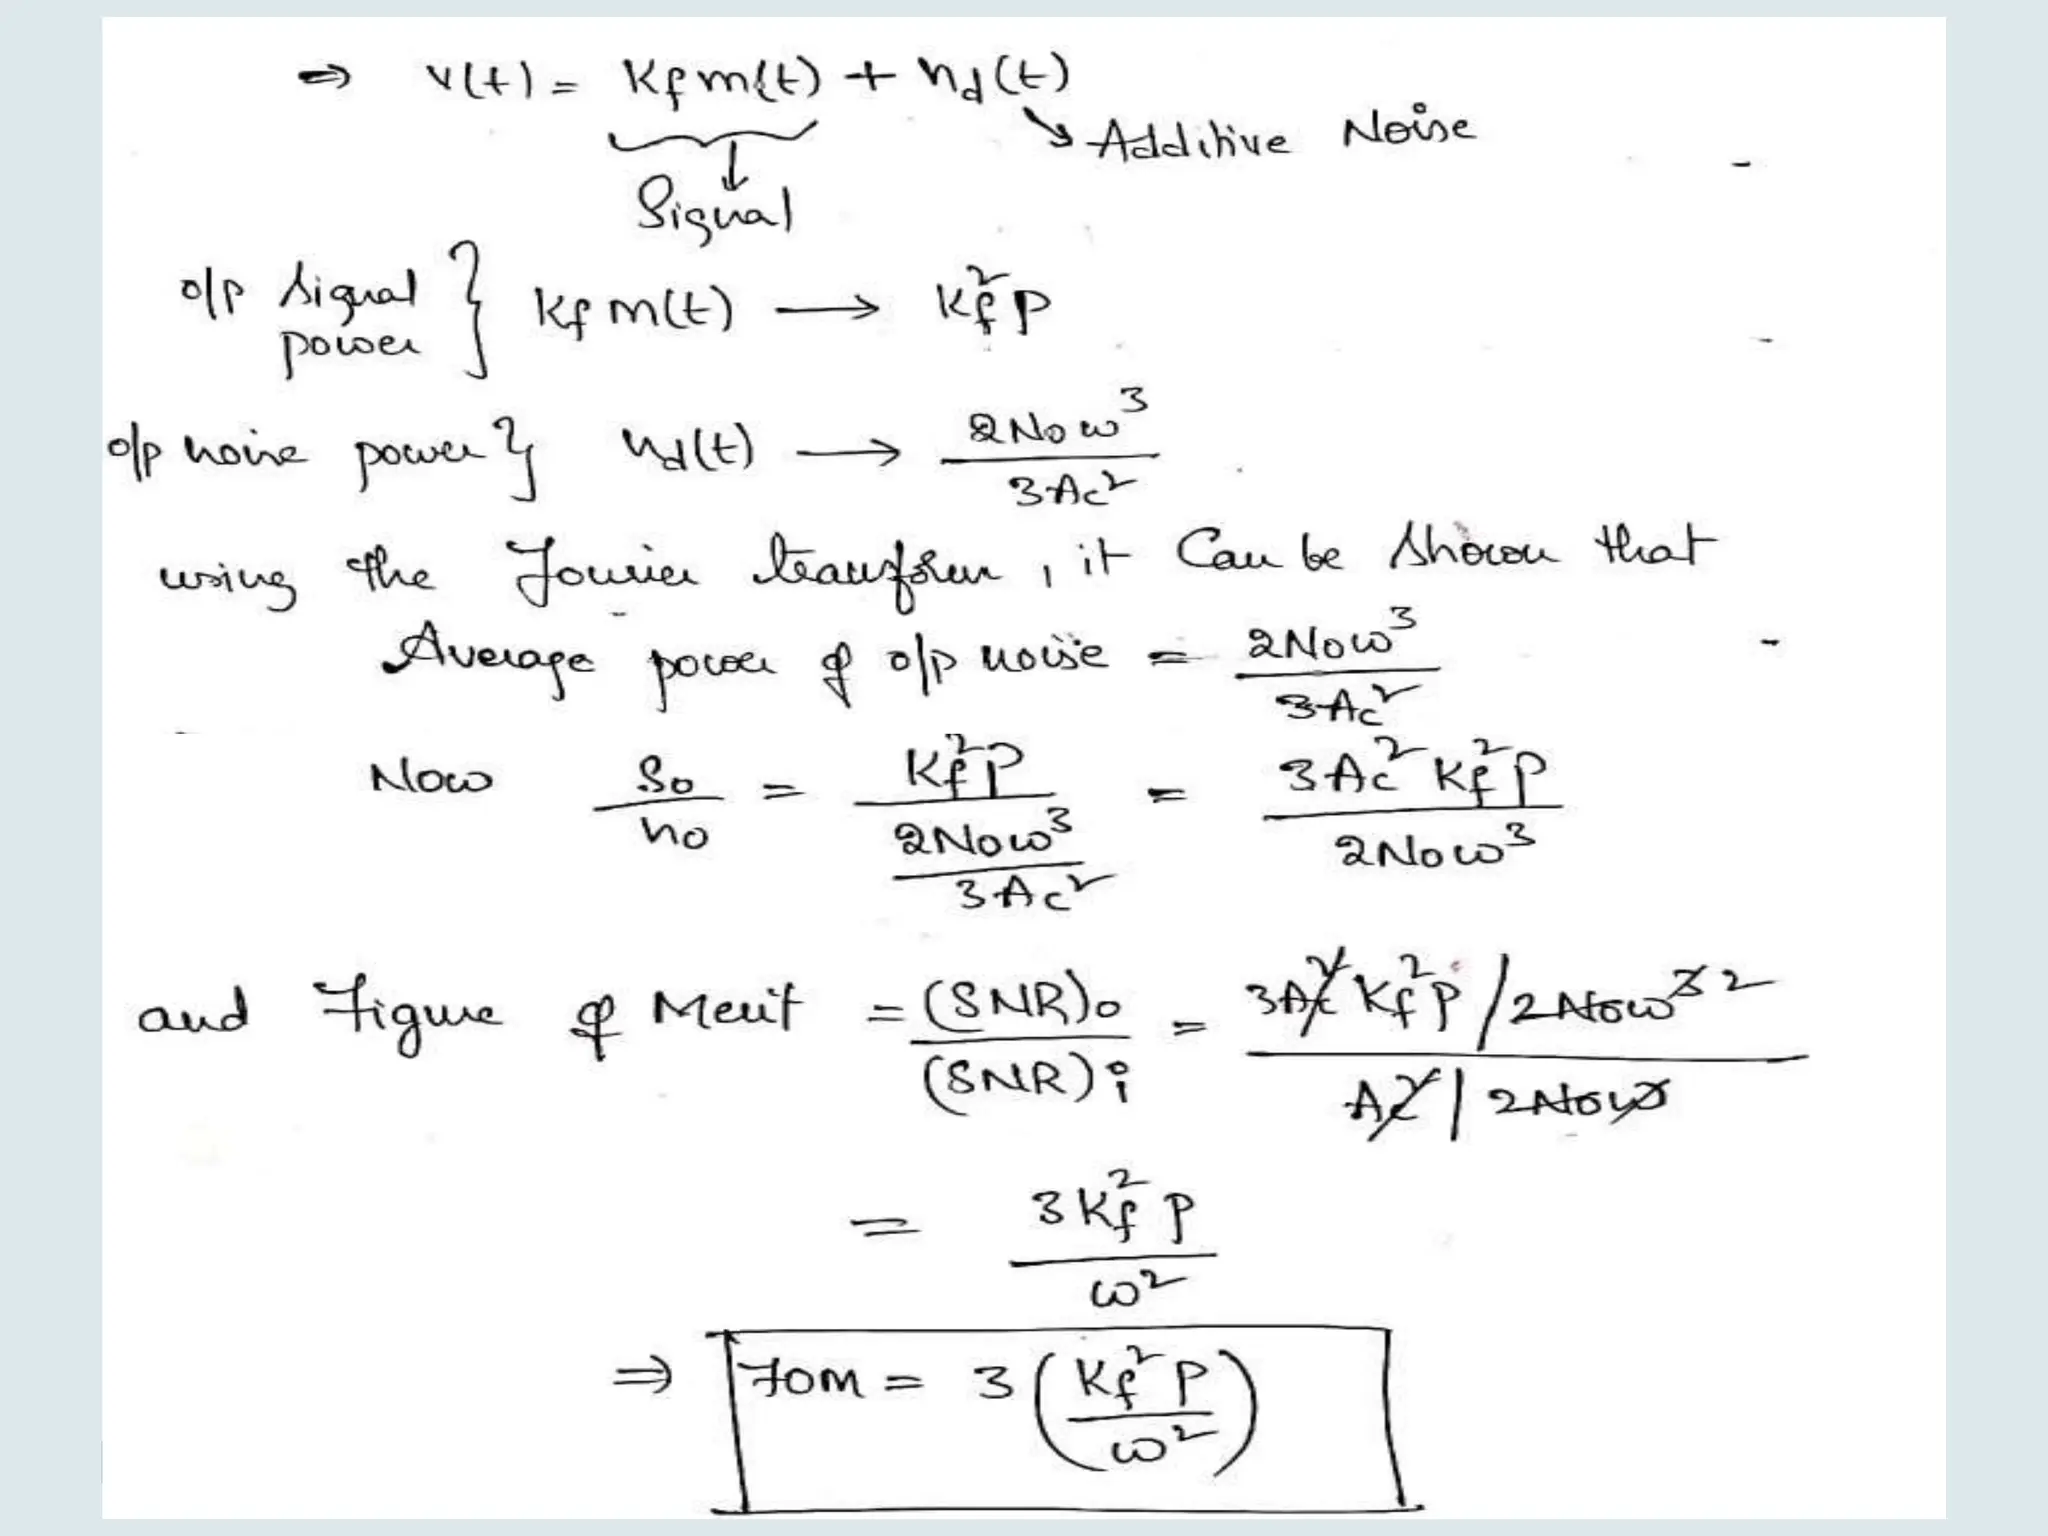 ⇒ v(t) = Kf m(t) + nd(t)
↘ Additive Noise
↓
Signal
o/p signal power } Kf m(t) → Kf² P
o/p noise power } nd(t) → 2N₀ω³ / 3Ac²
using the Fourier transform, it Can be shown that
Average power of o/p noise = 2N₀ω³ / 3Ac²
Now So/no = Kf² P / (2N₀ω³ / 3Ac²) = 3Ac² Kf² P / 2N₀ω³
and Figure of Merit = (SNR)o / (SNR)i = (3Ac² Kf² P / 2N₀ω³ ²) / (Ac² / 2N₀ω)
= 3Kf² P / ω²
⇒ FOM = 3 (Kf² P / ω²)